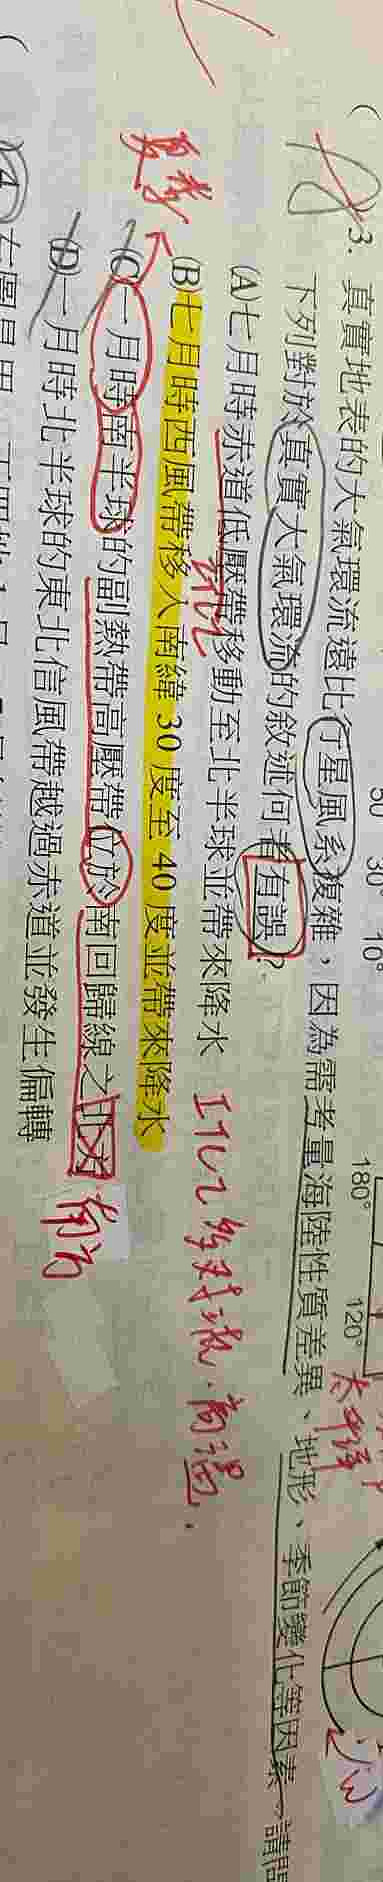 50 30 10°
180° 120°
3. 真實地表的大氣環流遠比行星風系複雜，因為需考量海陸性質差異、地形、季節變化等因素。請問
下列對於真實大氣環流的敘述何者有誤？
(A)七月時赤道低壓帶移動至北半球並帶來降水
ITCZ 多對流.高溫.
(B)七月時西風帶移入南緯 30 度至 40 度並帶來降水
夏季
(C)一月時南半球的副熱帶高壓帶位於南回歸線之
(D)一月時北半球的東北信風帶越過赤道並發生偏轉
4